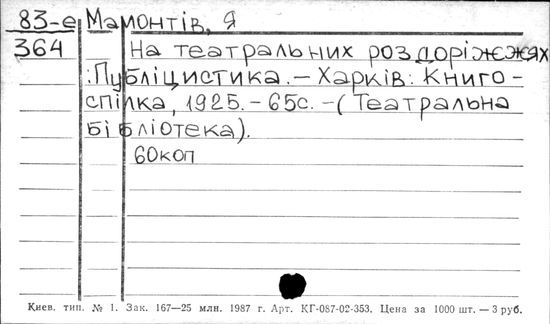 83-е Мамонтів, Я
364 На театральних роздоріжжях
: Публіцистика. – Харків: Книго-
спілка, 1925. – 65с. – (Театральна
бібліотека).
60коп
Киев. тип. № 1. Зак. 167—25 млн. 1987 г. Арт. КГ-087-02-353. Цена за 1000 шт. — 3 руб.